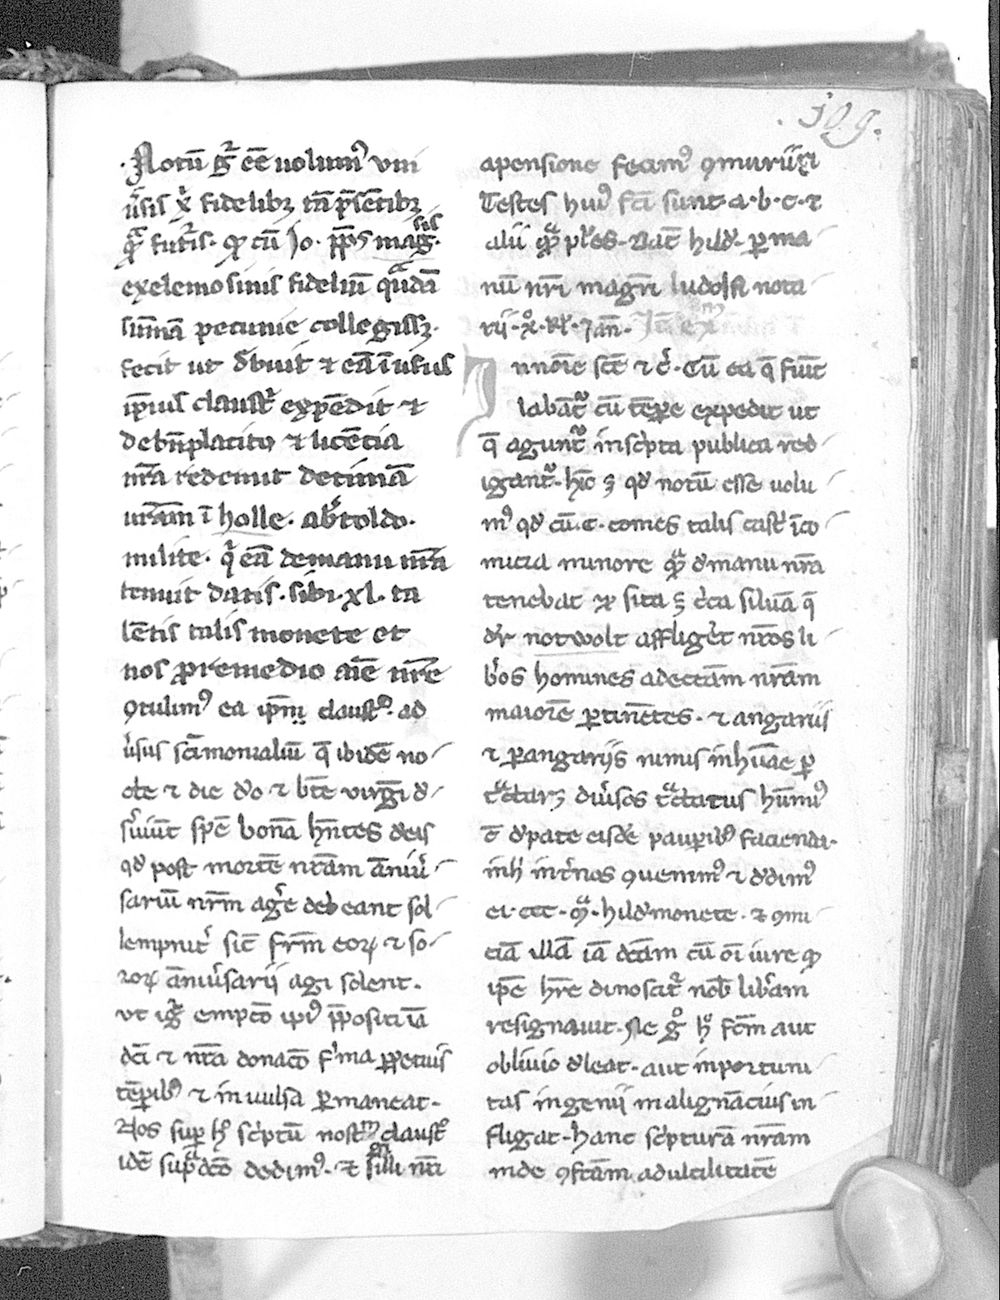 109.
Notū gͬ eē uolumꝰ vni
ūsis xͥ fidelibꝫ tā p̄sētibꝫ
qͣ futͥis. qͦ cū Jo. pp̄s mag.
sis
exelemosinis fideliū qͣdā
sūmā pecunie collegissꝫ.
fecit ut dͤbuit ⁊ eā ī usus
ip̄ius claustͥ expēdit ⁊
debn̄placito ⁊ licētia
nr̄a redemit decimā
uram ī holle. abͤtoldo.
milite. qͥ eā demanu nr̄a
tenuit datis. sibi. xl. ta
lētis talis monete et
nos ꝓremedio aīe nr̄e
ꝯtulimꝰ ea ip̄m claustͦ. ad
ūsus sc̄imonialiū q̄ ibidē no
cte ⁊ die dō ⁊ bt̄e virgī d
s̄uiūt spē bonā hn̄tes deis
qd post mortē nr̄am āniu
sariū nr̄m agͤe debeant sol
lempnitͥ sic̄ fr̄m eoꝝ ⁊ so
roꝝ āniūsarii agi solent.
vt igͥ empcō ipͥ p̄positi iā
dc̄i ⁊ nr̄a donacō fͥma ꝑpetuis
tēpibꝰ ⁊ inuulsa ꝑmaneat.
Nos suꝑ hͦ scͥptū nostͫ claustͦ
idē supͣdc̄o dedimꝰ. ⁊ sigilli nr̄i
apensione fecimꝰ ꝯmuniri
Testes huiꝰ fc̄i sunt. a. b. c. ⁊
alii qͣ pl̄es. Dat̄ hild. ꝑ ma
nū nr̄i magr̄i ludolfi nota
rii. xͦ. kl̄. Jan̄.
Innoīe sc̄e ⁊ cͥ. Cū ea q̄ fiūt
labāt cū tēpe expedit ut
q̄ agunt inscͥpta publica red
igant. hīc ꝫ qd notū esse uolu
mꝰ qd cū. c. comes talis castͥ ī co
micia minore qͣ dͤmanu nr̄a
tenebat ꝓ sita ꝫ cͥca siluā q̄
dͬ notwolt affligͤet nr̄os li
bͤos homines adectām nr̄am
maiorē ꝑtinētes. ⁊ angariis
⁊ ꝑangariis nimis inhūae ꝑ
tͣctarꝫ diūsos tͣctatus hūimꝰ
c̄ dͤpate eisdē pauꝑibꝰ faciendi.
inhͦ int̄nos ꝯuenimꝰ ⁊ dͤdimꝰ
ei. cct. mͣ. hild monete. ⁊ ꝯmi
ciā illā iā dc̄am cū oī iure qͦ
ip̄e hr̄e dinoscitͬ nob̄ libͤam
resignauit. Ne gͦ hͦ fc̄m aut
obliuio dͤleat. aut inportuni
tas ingenii malignācius in
fligat. hanc scͥpturā nr̄am
inde ꝯfc̄am adutilitatē